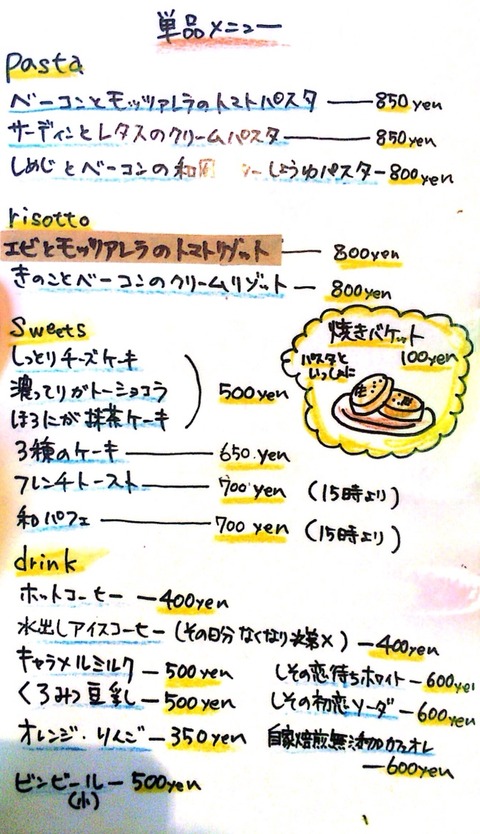 単品メニュー
pasta
ベーコンとモッツァレラのトマトパスタ ── 850 yen
サーディンとレタスのクリームパスタ ── 850 yen
しめじとベーコンの和風 ーしょうゆパスタ ─ 800 yen
risotto
エビとモッツアレラのトマトリゾット ── 800 yen
きのことベーコンのクリームリゾット ─ 800 yen
焼きバケット
100yen
パスタと
いっしょに
Sweets
しっとりチーズケーキ
濃ってりガトーショコラ
ほろにが抹茶ケーキ
500 yen
3種のケーキ ── 650.yen
フレンチトースト ── 700 yen (15時より)
和パフェ ── 700 yen (15時より)
drink
ホットコーヒー ─ 400yen
水出しアイスコーヒー (その日分なくなり次第×) ─ 400yen
キャラメルミルク ─ 500 yen
しその恋待ちホワイト ─ 600yen
くろみつ豆乳 ─ 500 yen
しその初恋ソーダ ─ 600yen
オレンジ・りんご ─ 350 yen
自家焙煎無添加カフェオレ
─ 600yen
ビンビール ─ 500yen
(小)